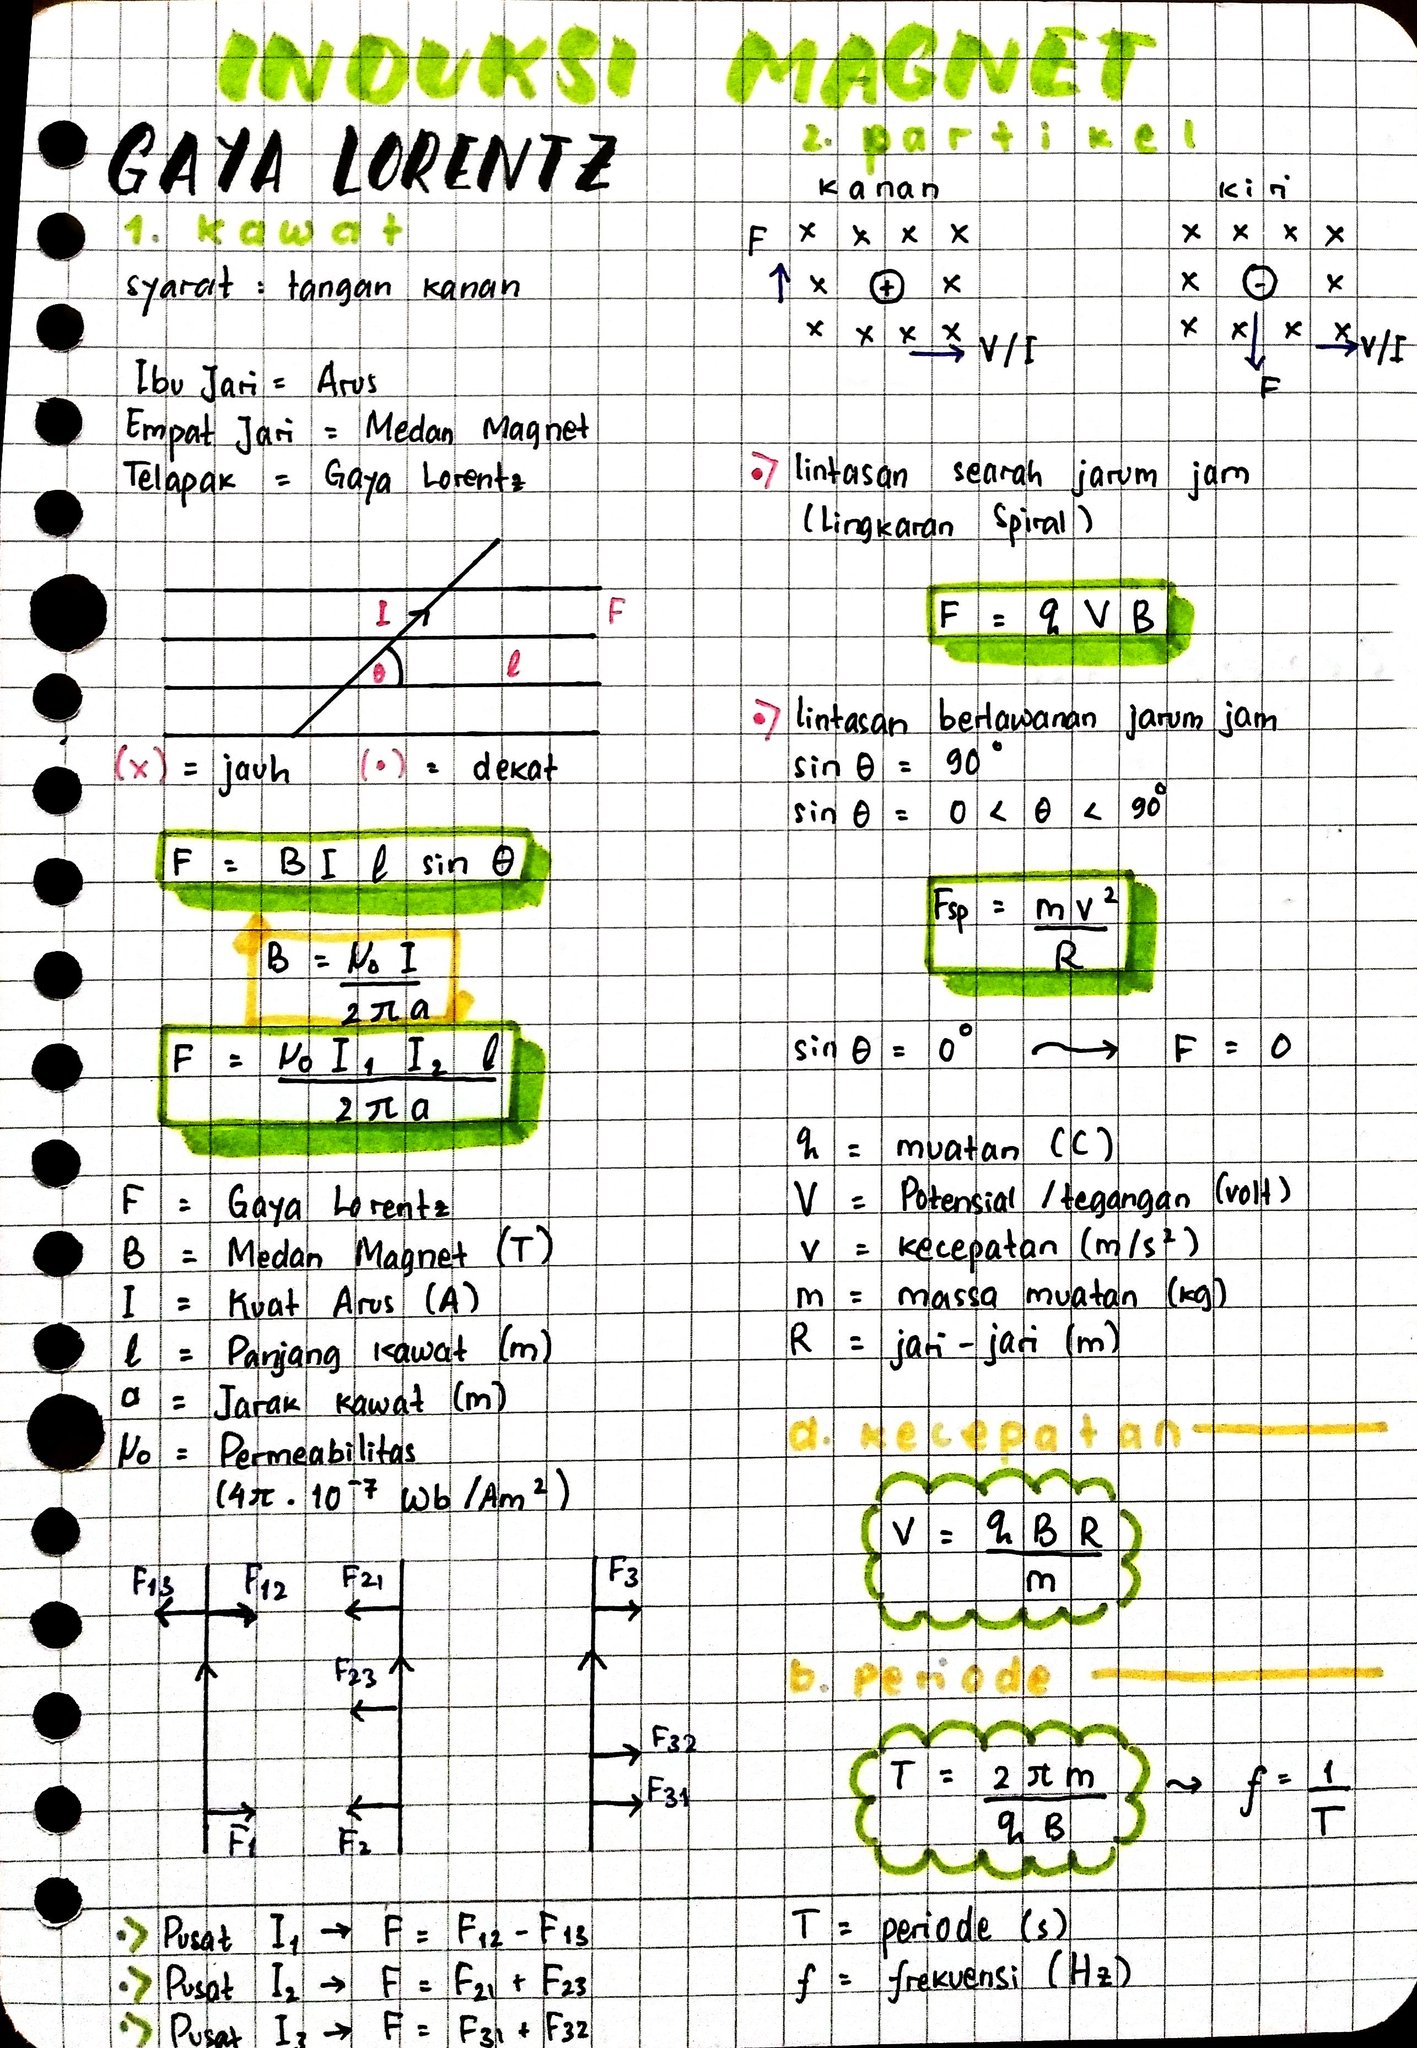 INDUKSI MAGNET
GAYA LORENTZ
1. kawat
syarat : tangan kanan
Ibu Jari = Arus
Empat Jari = Medan Magnet
Telapak = Gaya Lorentz
I
F
θ
l
(x) = jauh (•) = dekat
F = B I l sin θ
B = μ₀ I / 2 π a
F = μ₀ I₁ I₂ l / 2 π a
F = Gaya Lorentz
B = Medan Magnet (T)
I = Kuat Arus (A)
l = Panjang kawat (m)
a = Jarak kawat (m)
μ₀ = Permeabilitas
(4π . 10⁻⁷ Wb/Am²)
F13 F12 F21 F3
F23
F32
F31
F1 F2
Pusat I₁ → F = F12 - F13
Pusat I₂ → F = F21 + F23
Pusat I₃ → F = F31 + F32
2. partikel
kanan kiri
F x x x x x x x x
↑ x ⊕ x x ⊖ x
x x x x x x x x
→ V/I → V/I
F
lintasan searah jarum jam
(Lingkaran Spiral)
F = q V B
lintasan berlawanan jarum jam
sin θ = 90°
sin θ = 0 < θ < 90°
Fsp = m v² / R
sin θ = 0° → F = 0
q = muatan (C)
V = Potensial /tegangan (volt)
v = kecepatan (m/s²)
m = massa muatan (kg)
R = jari - jari (m)
a. kecepatan
V = q B R / m
b. periode
T = 2 π m / q B ⇝ f = 1 / T
T = periode (s)
f = frekuensi (Hz)